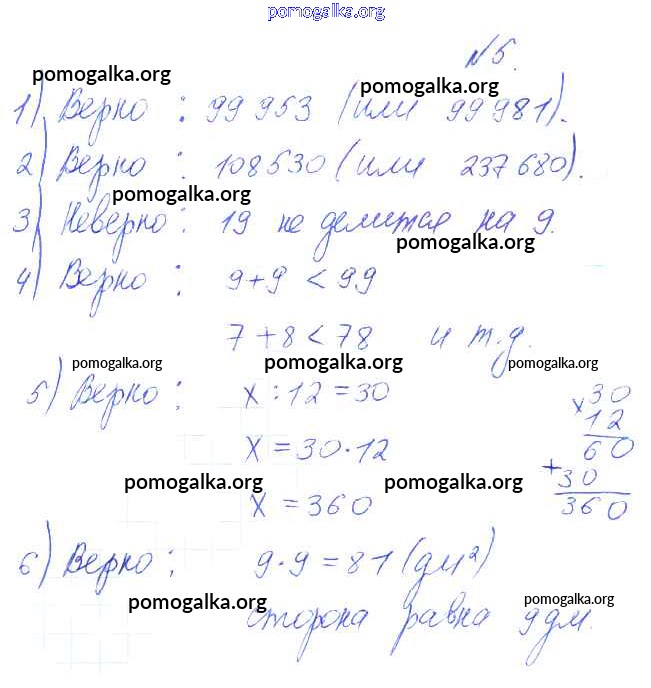 pomogalka.org
№5.
pomogalka.org pomogalka.org
1) Верно : 99 953 (или 99 981).
2) Верно : 108530 (или 237 680).
pomogalka.org
3) Неверно : 19 не делится на 9.
pomogalka.org
4) Верно : 9+9 < 99
7+8 < 78 и т.д.
pomogalka.org pomogalka.org pomogalka.org
5) Верно : x : 12 = 30
x = 30·12
x = 360
× 30
12
60
+ 30
360
pomogalka.org pomogalka.org
6) Верно : 9·9 = 81 (дм²)
pomogalka.org pomogalka.org
сторона равна 9 дм.